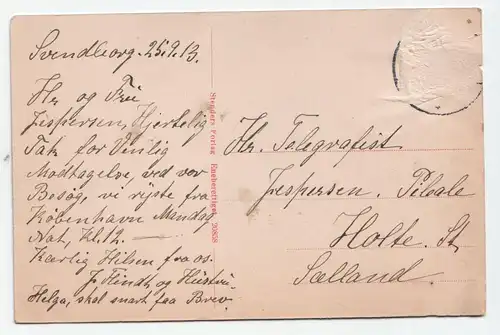 Svendborg. 25.9.13.
Hr og Frú
Jespersen, Hjertelig
Tak for Venlig
Modtagelse, ved vor
Besøg, vi rejste fra
København Mandag
Nat, Kl. 12. —
Kærlig Hilsen fra os.
og Hústrú.
Helga, skal snart faa Brev.
Stenders Forlag Eneberettiget 20858
Hr. Telegrafist
Jespersen. Pileale
Holte. St
Sælland.